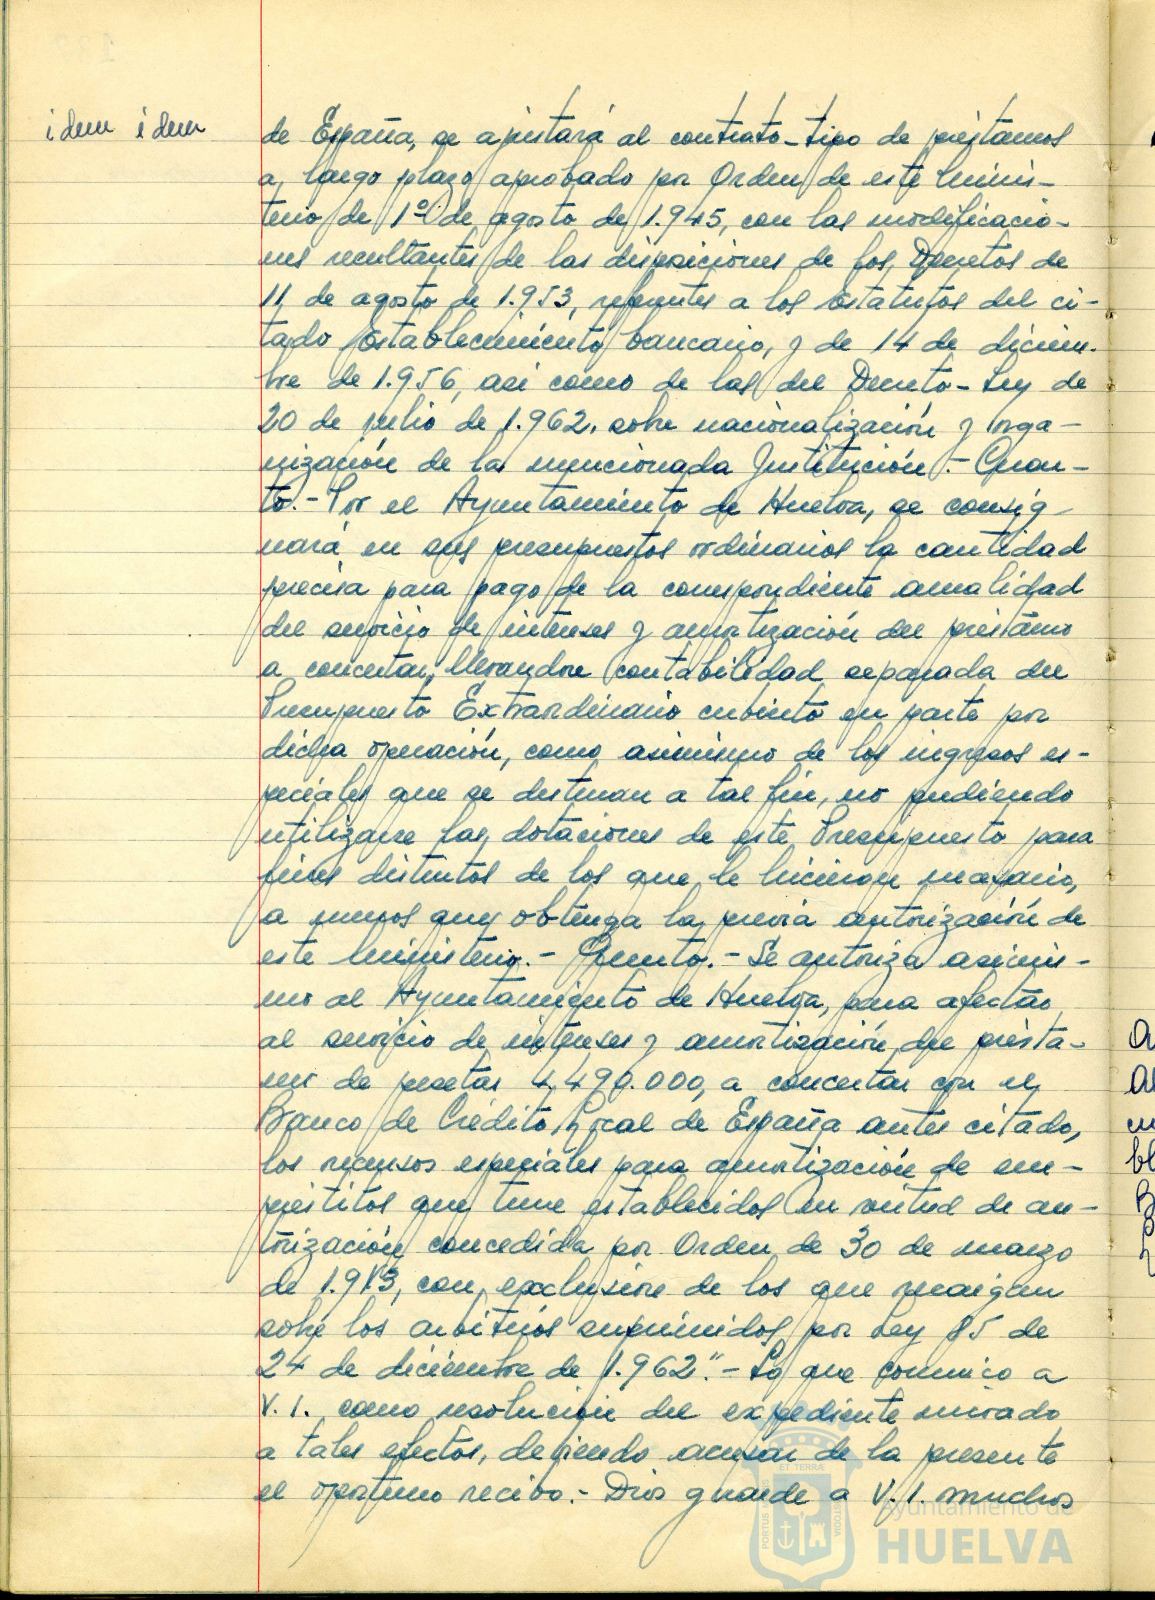 idem idem
de España, se ajustará al contrato-tipo de préstamos
a largo plazo aprobado por Orden de este Minis-
terio de 1º de agosto de 1.945, con las modificacio-
nes resultantes de las disposiciones de los Decretos de
11 de agosto de 1.953, referentes a los Estatutos del ci-
tado Establecimiento bancario, y de 14 de diciem-
bre de 1.956, así como de las del Decreto-Ley de
20 de julio de 1.962, sobre nacionalización y orga-
nización de la mencionada Institución.- Cuar-
to.- Por el Ayuntamiento de Huelva, se consig-
nará en sus presupuestos ordinarios la cantidad
precisa para pago de la correspondiente anualidad
del servicio de intereses y amortización del préstamo
a concertar, llevandose contabilidad separada del
Presupuesto Extraordinario cubierto en parte por
dicha operación, como asimismo de los ingresos es-
peciales que se destinan a tal fin, no pudiendo
utilizarse las dotaciones de este Presupuesto para
fines distintos de los que le hicieron necesario,
a menos que obtenga la previa autorización de
este Ministerio.- Quinto.- Se autoriza asimis-
mo al Ayuntamiento de Huelva, para afectar
al servicio de intereses y amortización del présta-
mo de pesetas 4.490.000, a concertar con el
Banco de Crédito Local de España antes citado,
los recursos especiales para amortización de em-
préstitos que tiene establecidos en virtud de au-
torización concedida por Orden de 30 de marzo
de con exclusión de los que recaigan
sobre los arbitrios suprimidos por Ley 85 de
24 de diciembre de 1.962".- Lo que comunico a
V.I. como resolución del expediente incoado
a tales efectos, debiendo acusar de la presente
el oportuno recibo.- Dios guarde a V.I. muchos
PORTUS MARIS ET TERRÆ CUSTODIA
Ayuntamiento de
HUELVA